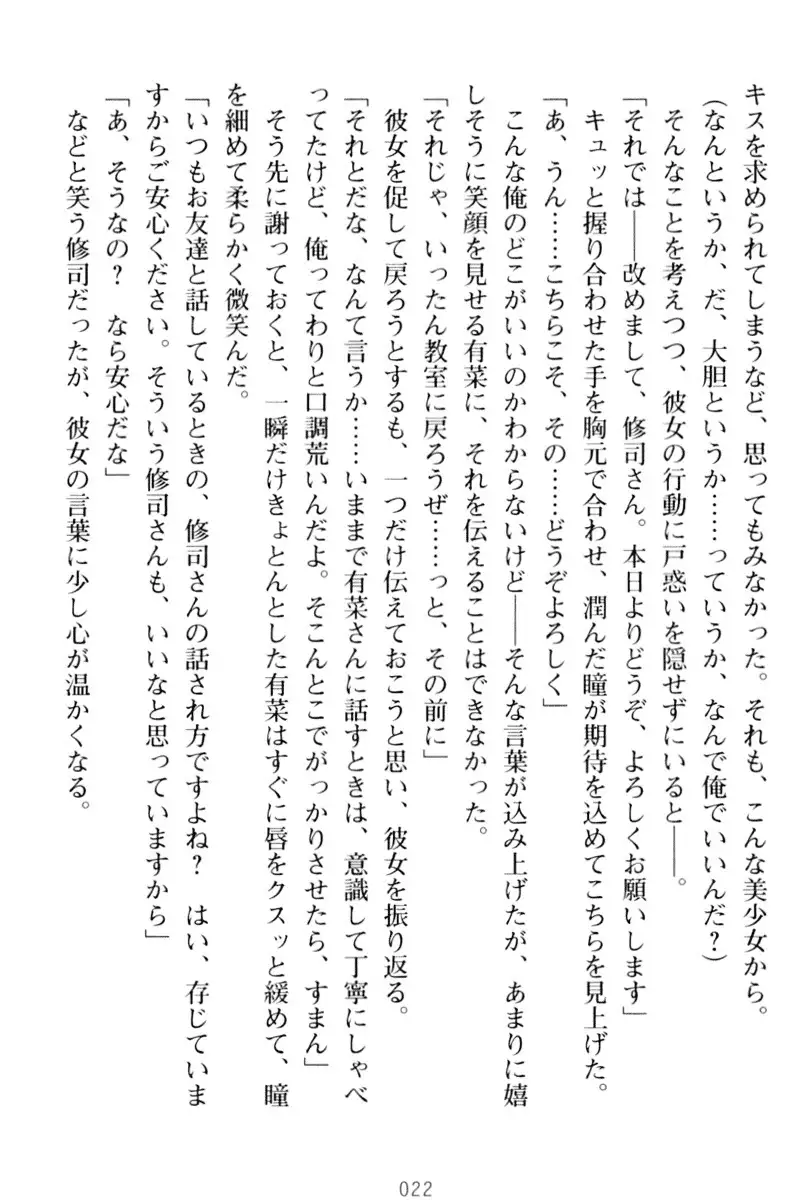 キスを求められてしまうなど、思ってもみなかった。それも、こんな美少女から。
(なんというか、だ、大胆というか……っていうか、なんで俺でいいんだ？)
そんなことを考えつつ、彼女の行動に戸惑いを隠せずにいると――。
「それでは――改めまして、修司さん。本日よりどうぞ、よろしくお願いします」
キュッと握り合わせた手を胸元で合わせ、潤んだ瞳が期待を込めてこちらを見上げた。
「あ、うん……こちらこそ、その……どうぞよろしく」
こんな俺のどこがいいのかわからないけど――そんな言葉が込み上げたが、あまりに嬉
しそうに笑顔を見せる有菜に、それを伝えることはできなかった。
「それじゃ、いったん教室に戻ろうぜ……っと、その前に」
彼女を促して戻ろうとするも、一つだけ伝えておこうと思い、彼女を振り返る。
「それとだな、なんて言うか……いままで有菜さんに話すときは、意識して丁寧にしゃべ
ってたけど、俺ってわりと口調荒いんだよ。そこんとこでがっかりさせたら、すまん」
そう先に謝っておくと、一瞬だけきょとんとした有菜はすぐに唇をクスッと緩めて、瞳
を細めて柔らかく微笑んだ。
「いつもお友達と話しているときの、修司さんの話され方ですよね？　はい、存じていま
すからご安心ください。そういう修司さんも、いいなと思っていますから」
「あ、そうなの？　なら安心だな」
などと笑う修司だったが、彼女の言葉に少し心が温かくなる。
022